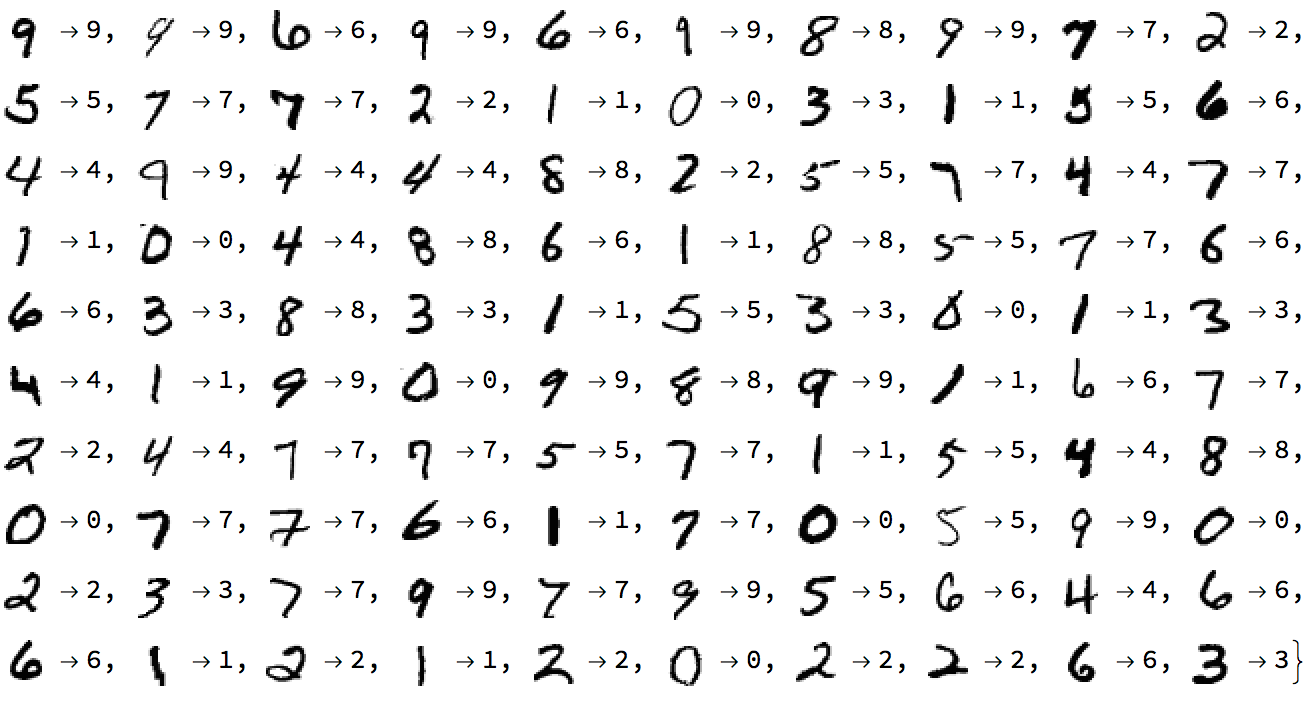 9 →9, 9 →9, 6 →6, 9 →9, 6 →6, 9 →9, 8 →8, 9 →9, 7 →7, 2 →2,
5 →5, 7 →7, 7 →7, 2 →2, 1 →1, 0 →0, 3 →3, 1 →1, 5 →5, 6 →6,
4 →4, 9 →9, 4 →4, 4 →4, 8 →8, 2 →2, 5 →5, 7 →7, 4 →4, 7 →7,
1 →1, 0 →0, 4 →4, 8 →8, 6 →6, 1 →1, 8 →8, 5 →5, 7 →7, 6 →6,
6 →6, 3 →3, 8 →8, 3 →3, 1 →1, 5 →5, 3 →3, 0 →0, 1 →1, 3 →3,
4 →4, 1 →1, 9 →9, 0 →0, 9 →9, 8 →8, 9 →9, 1 →1, 6 →6, 7 →7,
2 →2, 4 →4, 7 →7, 7 →7, 5 →5, 7 →7, 1 →1, 5 →5, 4 →4, 8 →8,
0 →0, 7 →7, 7 →7, 6 →6, 1 →1, 7 →7, 0 →0, 5 →5, 9 →9, 0 →0,
2 →2, 3 →3, 7 →7, 9 →9, 7 →7, 9 →9, 5 →5, 6 →6, 4 →4, 6 →6,
6 →6, 1 →1, 2 →2, 1 →1, 2 →2, 0 →0, 2 →2, 2 →2, 6 →6, 3 →3}